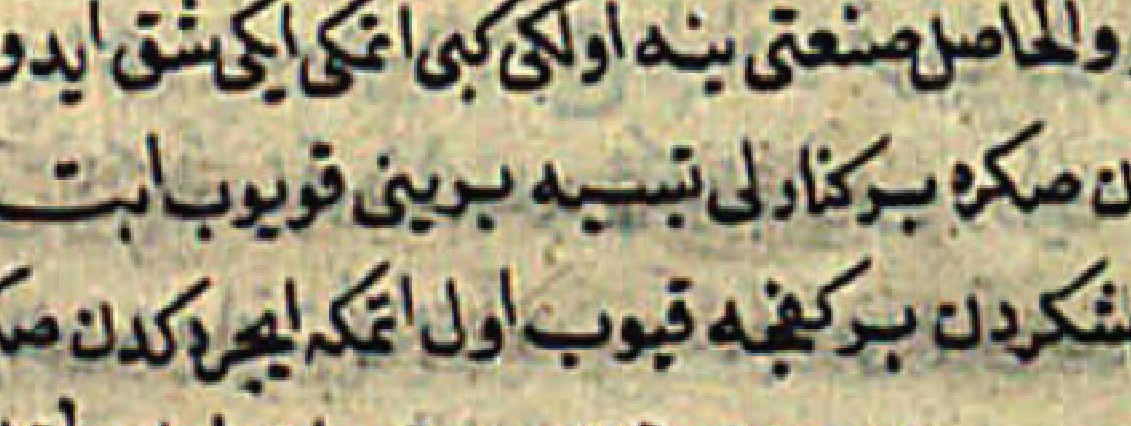 والحاصل صنعتی ینه اولکی کبی اتمکی ایکی شق ایدو
ن صکره بر کنارلی تبسیه برینی قویوب ابت
شکردن بر کفچه قیوب اول اتمکه ایچردکدن صکـ